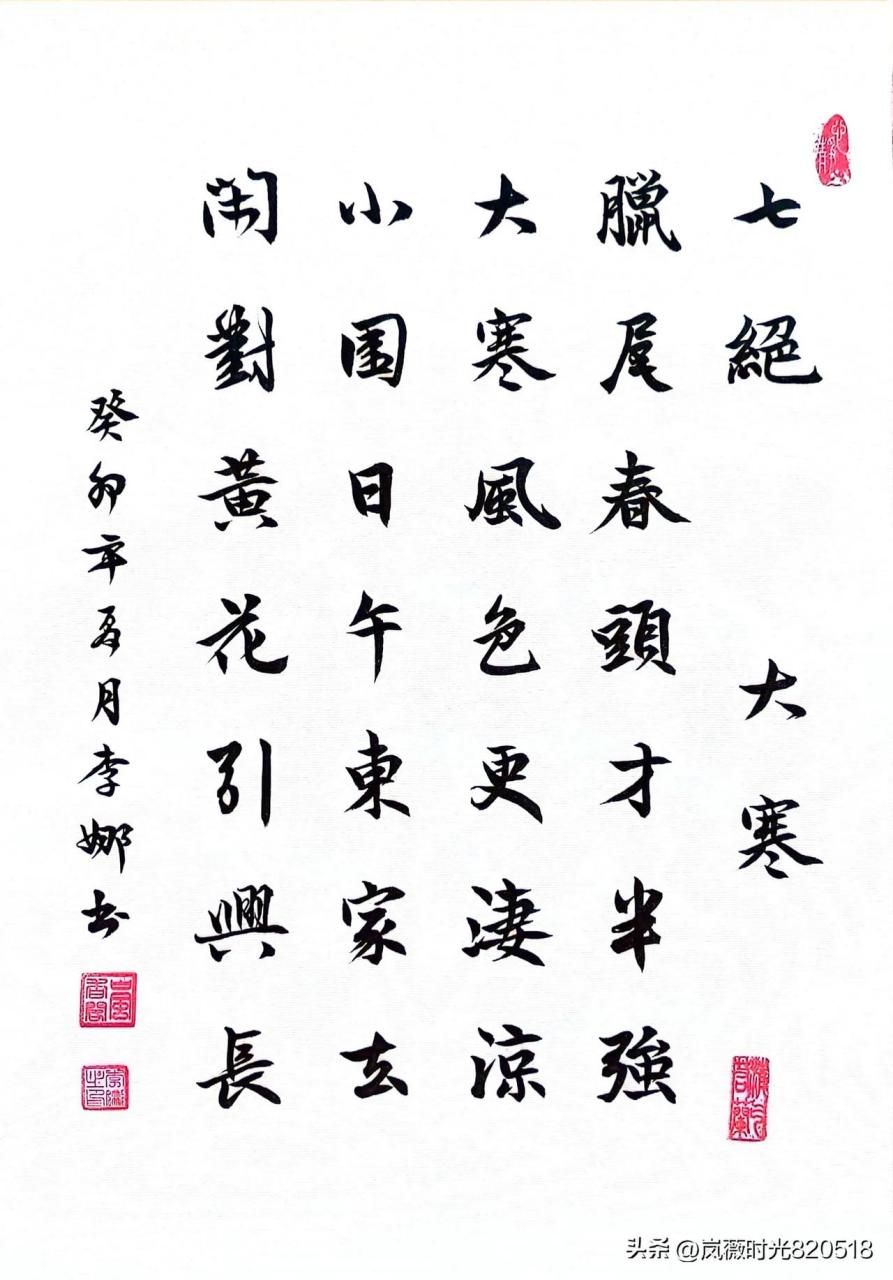 七絕 大寒
臘尾春頭才半強
大寒風色更淒涼
小園日午東家去
閑對黃花引興長
癸卯年夏月李娜书
头条 @岚薇时光820518